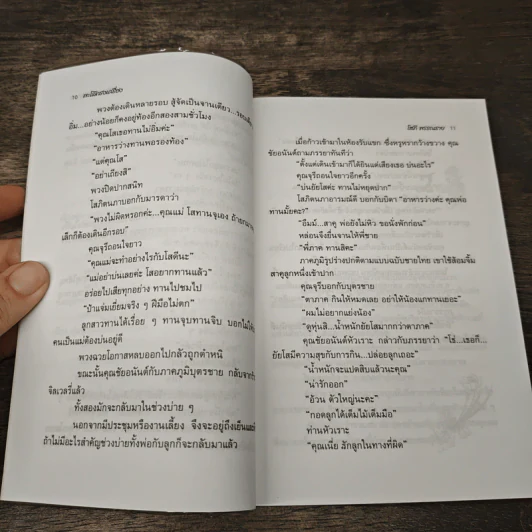 10
พวงต้องเดินหลายรอบ สู้จัดเป็นจานเดียว...รวบ
อิ่ม...อย่างน้อยก็คงอยู่ท้องอีกสองสามชั่วโมง
"คุณโสเธอทานไม่อิ่มค่ะ"
"อาหารว่างทานพอรองท้อง"
"แต่คุณโส"
"อย่าเถียงสิ"
พวงปิดปากสนิท
โสภิตนภาบอกกับมารดาว่า
"พวงไม่ผิดหรอกค่ะ...คุณแม่ โสทานจุเอง ถ้ายกมา
เล็กก็ต้องเดินอีกรอบ"
คุณจุรีถอนใจยาว
"คุณแม่จะทำอย่างไรกับโสดีนะ"
"แม่อย่าบ่นเลยค่ะ โสอยากทานแล้ว"
อร่อยไปเสียทุกอย่าง ทานไปชมไป
"ป้าแจ่มเยี่ยมจริง ๆ ฝีมือไม่ตก"
ลูกสาวทานได้เรื่อย ๆ ทานจุบทานจิบ บอกไม่ได้
คนเป็นแม่ต้องบ่นอยู่ดี
พวงฉวยโอกาสหลบออกไปกลัวถูกตำหนิ
ขณะนั้นคุณชัยอนันต์กับภาคภูมิบุตรชาย กลับจาก
จิลเวลรี่แล้ว
ทั้งสองมักจะกลับมาในช่วงบ่าย ๆ
นอกจากมีประชุมหรืองานเลี้ยง จึงจะอยู่ถึงเย็น
ถ้าไม่มีอะไรสำคัญช่วงบ่ายทั้งพ่อกับลูกก็จะกลับมาแล้ว
โสภี พรรณราย 11
เมื่อก้าวเข้ามาในห้องรับแขก ซึ่งหรูหรากว้างขวาง คุณ
ชัยอนันต์ถามภรรยาทันทีว่า
"ตั้งแต่เดินเข้ามาก็ได้ยินแต่เสียงเธอ บ่นอะไร"
คุณจุรีถอนใจยาวอีกครั้ง
"บ่นยัยโสค่ะ ทานไม่หยุดปาก"
โสภิตนภาอารมณ์ดี บอกกับบิดา "อาหารว่างค่ะ คุณพ่อ
ทานมั้ยคะ?"
"อืมม์...สาคู พ่อยังไม่หิว ขอนั่งพักก่อน"
หล่อนจึงยื่นจานให้พี่ชาย
"พี่ภาค ทานสิคะ"
ภาคภูมิรูปร่างปกติตามแบบฉบับชายไทย เขาใช้ส้อมจิ้ม
สาคูลูกหนึ่งเข้าปาก
คุณจุรีบอกกับบุตรชาย
"ตาภาค กินให้หมดเลย อย่าให้น้องแกทานเยอะ"
"ผมไม่อยากแย่งน้อง"
"ดูหุ่นสิ...น้ำหนักยัยโสมากกว่าตาภาค"
คุณชัยอนันต์หัวเราะ กล่าวกับภรรยาว่า "โธ่...เธอก็...
ยัยโสมีความสุขกับการกิน...ปล่อยลูกเถอะ"
"น้ำหนักจะแปดสิบแล้วนะคุณ"
"น่ารักออก"
"อ้วน ตัวใหญ่นะคะ"
"กอดลูกได้เต็มไม้เต็มมือ"
ท่านหัวเราะ
"คุณเนี่ย รักลูกในทางที่ผิด"